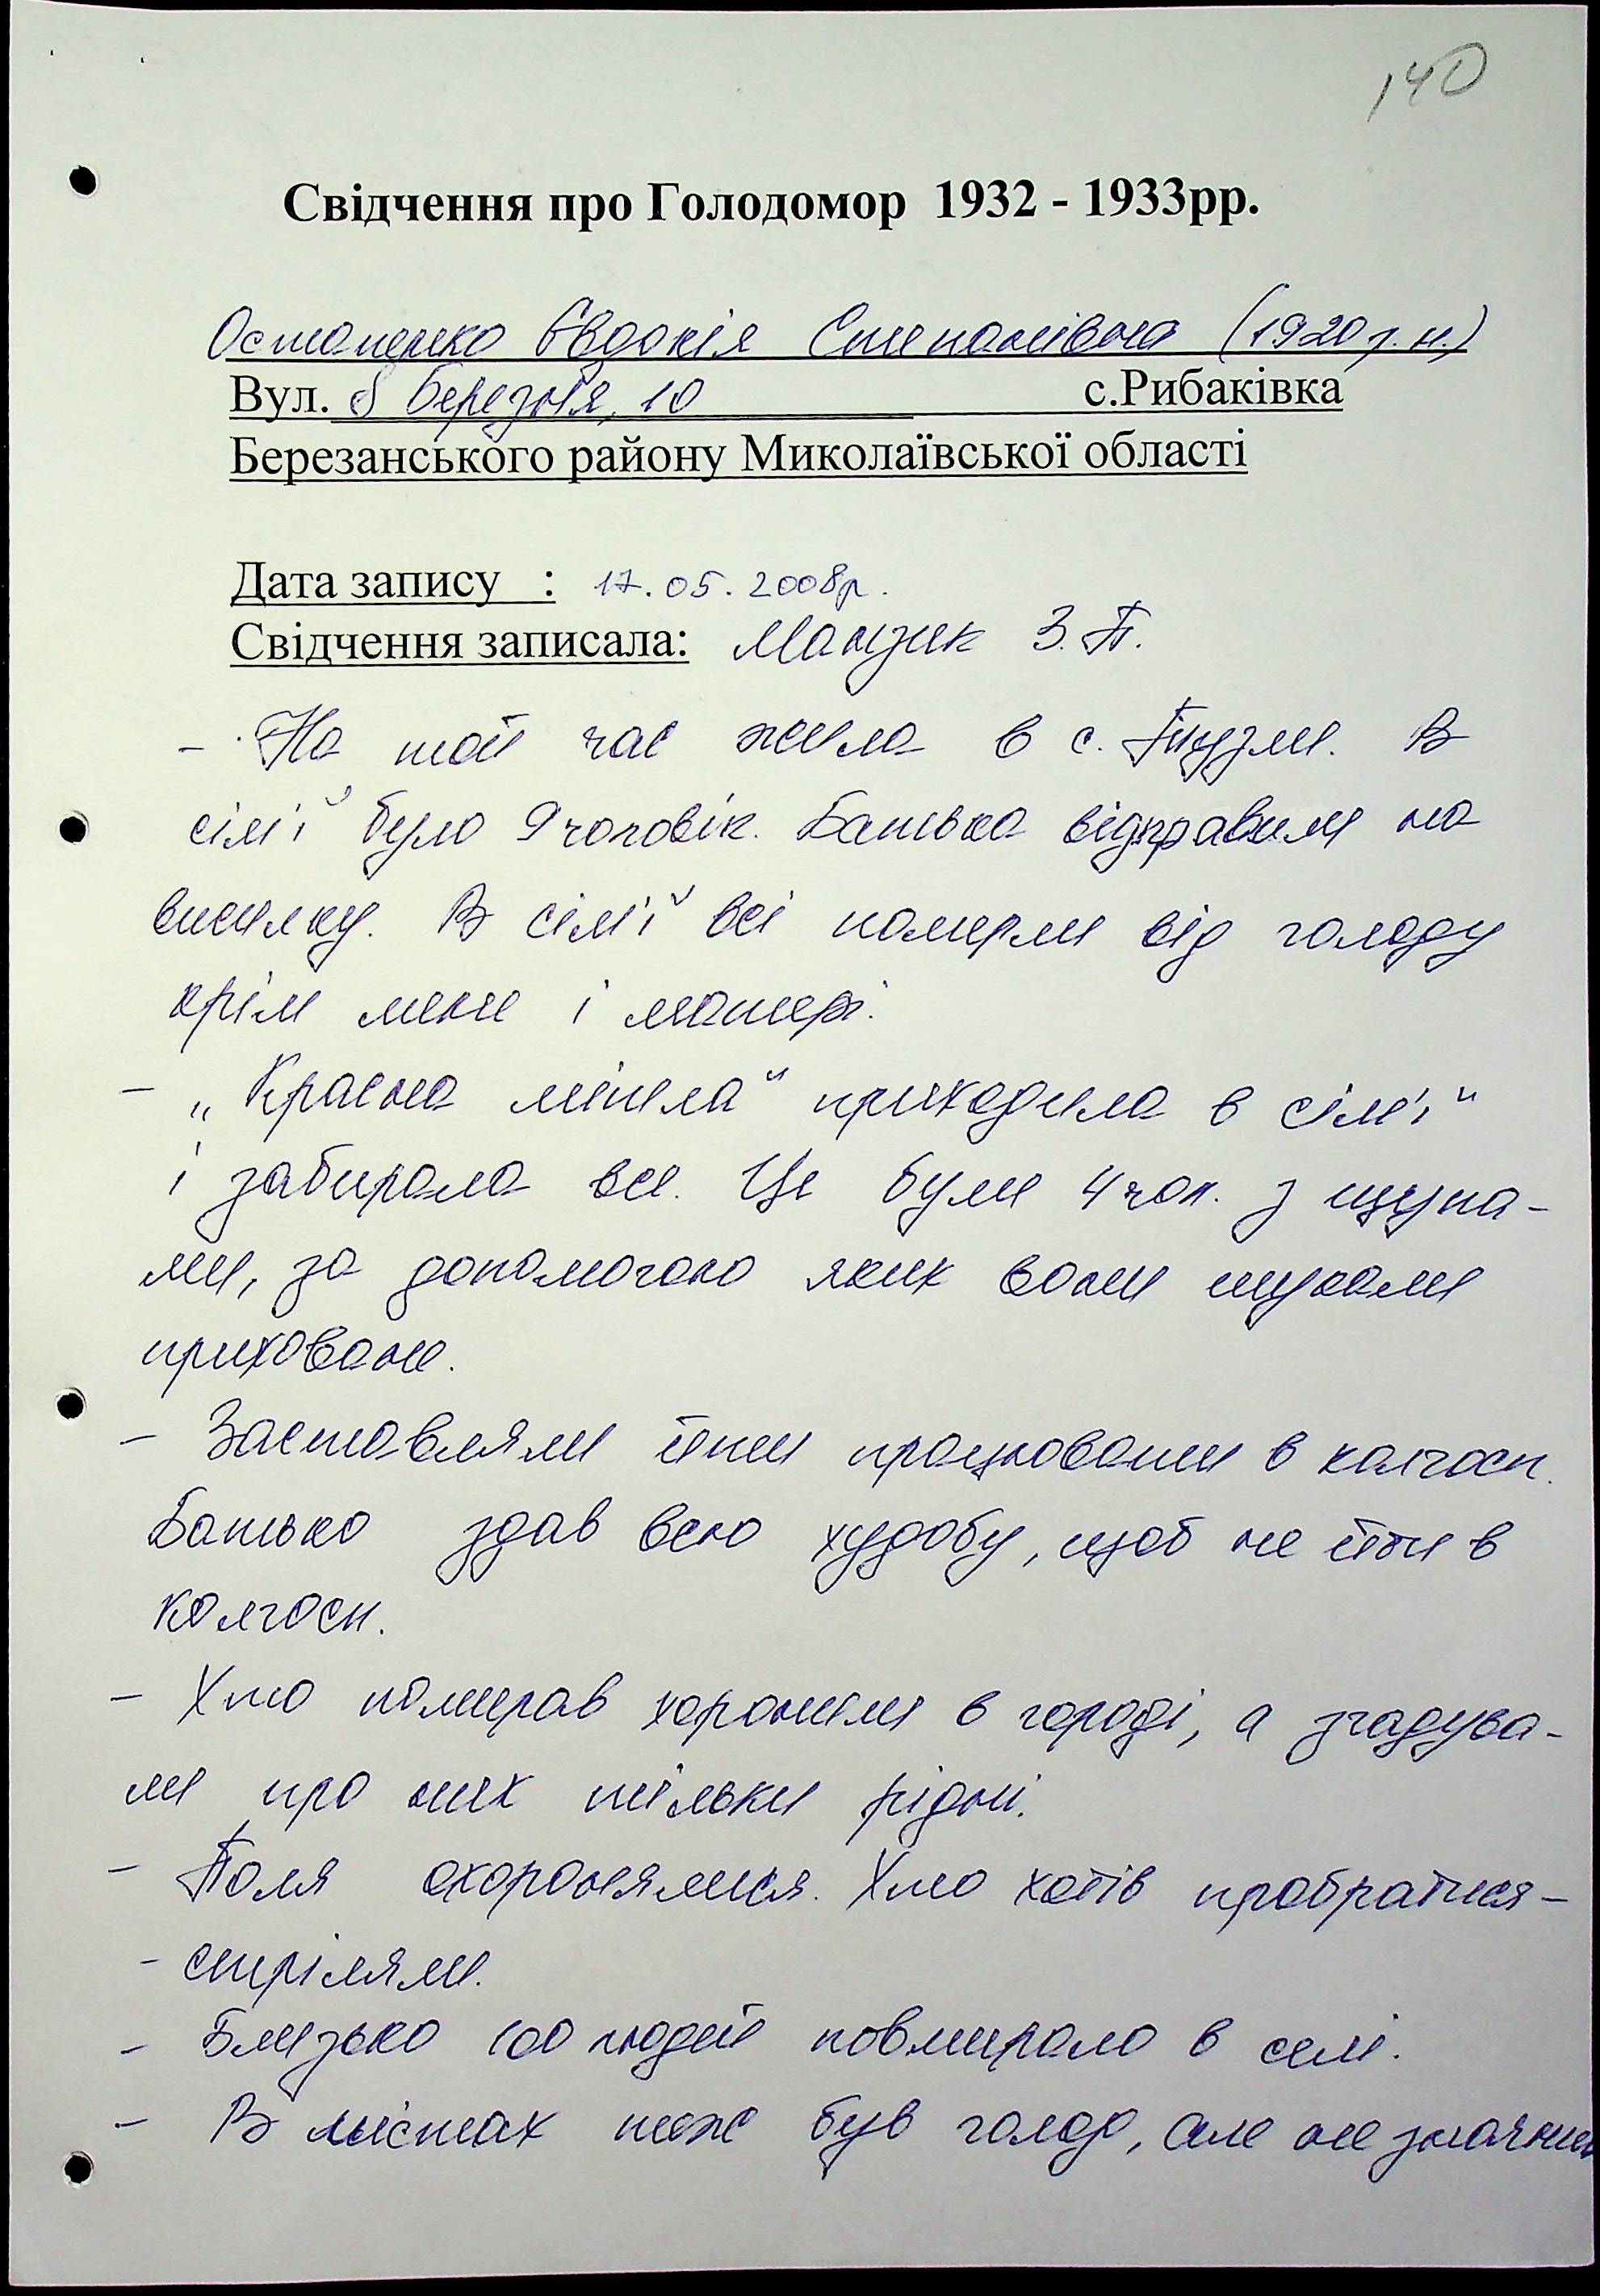 140
Свідчення про Голодомор 1932 - 1933рр.
Остапенко Євдокія Степанівна (1920 р. н.)
Вул. 8 березня, 10 с.Рибаківка
Березанського району Миколаївської області
Дата запису : 17.05.2008р.
Свідчення записала: Манзик З. П.
- На той час жила в с. Тузли. В
сім'ї було 9 чоловік. Батька відправили на
висилку. В сім'ї всі померли від голоду
крім мене і матері.
- „Красна мітла" приходила в сім'ї
і забирала все. Це були 4 чол. з щупа-
ми, за допомогою яких вони шукали
приховане.
- Заставляли йти працювати в колгосп.
Батько здав всю худобу, щоб не йти в
колгосп.
- Хто помирав хоронили в городі, а згадува-
ли про них тільки рідні.
- Поля охоронялися. Хто хотів пробратися -
- стріляли.
- Близько 100 людей повмирало в селі.
- В містах теж був голод, але не значний